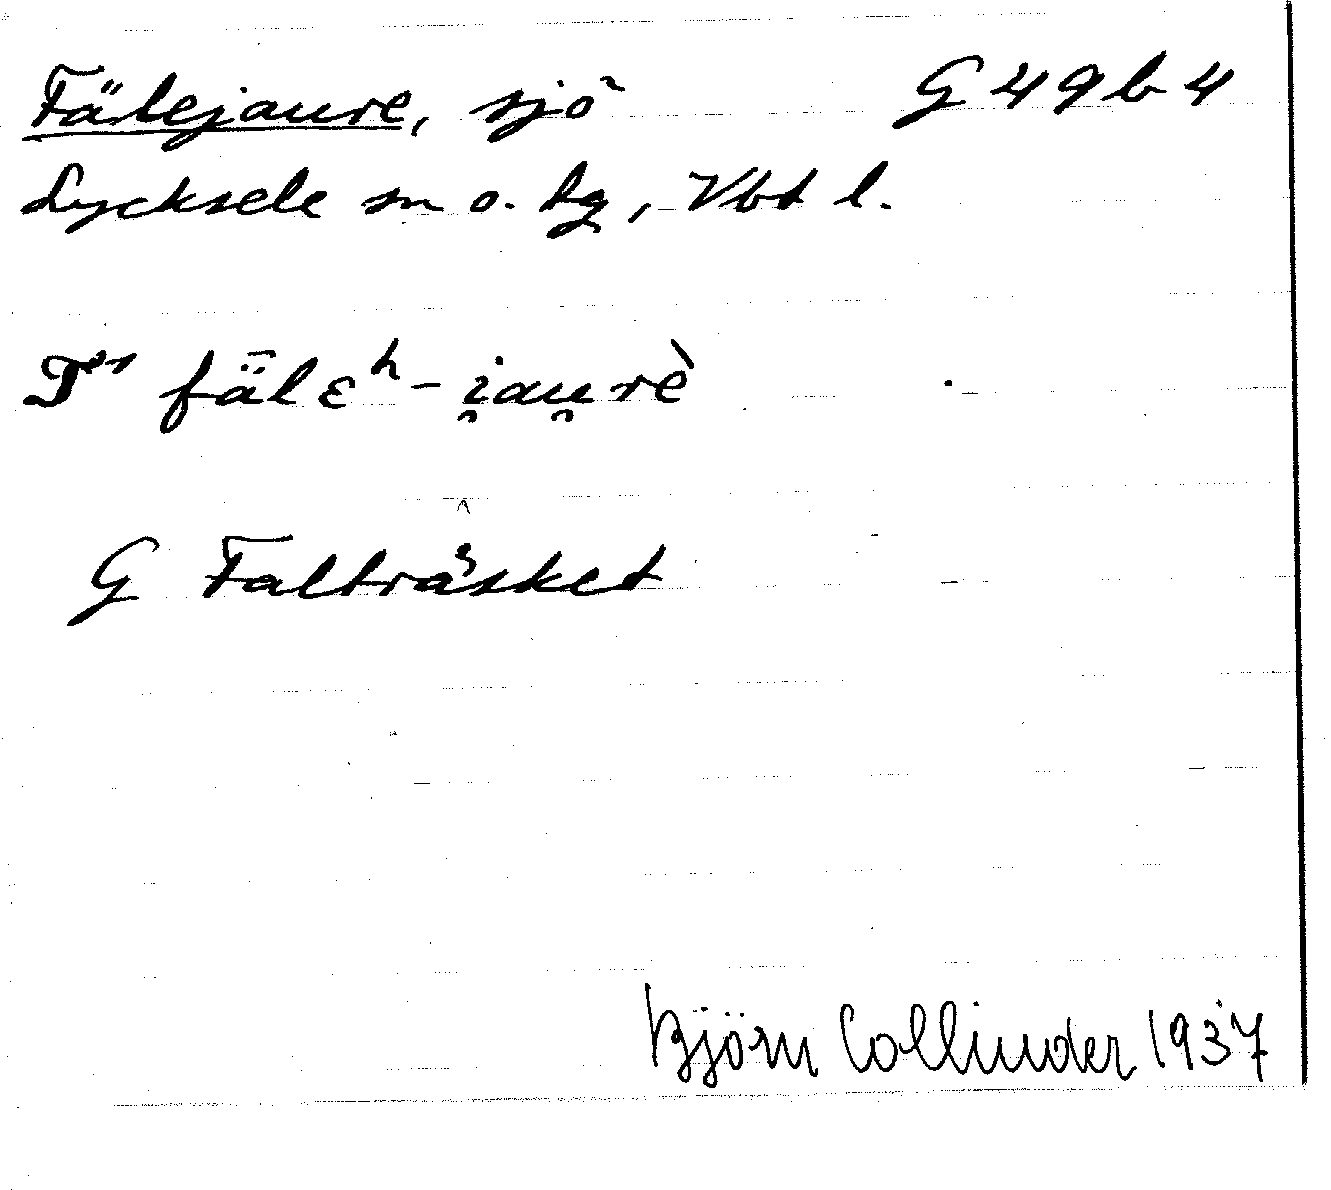 Fälejaure, sjö G 49 b 4
Lycksele sn o. lg, Vbt l.
fǟlɛʰ-i̯au̯rè
G Falträsket
Björn Collinder 1937